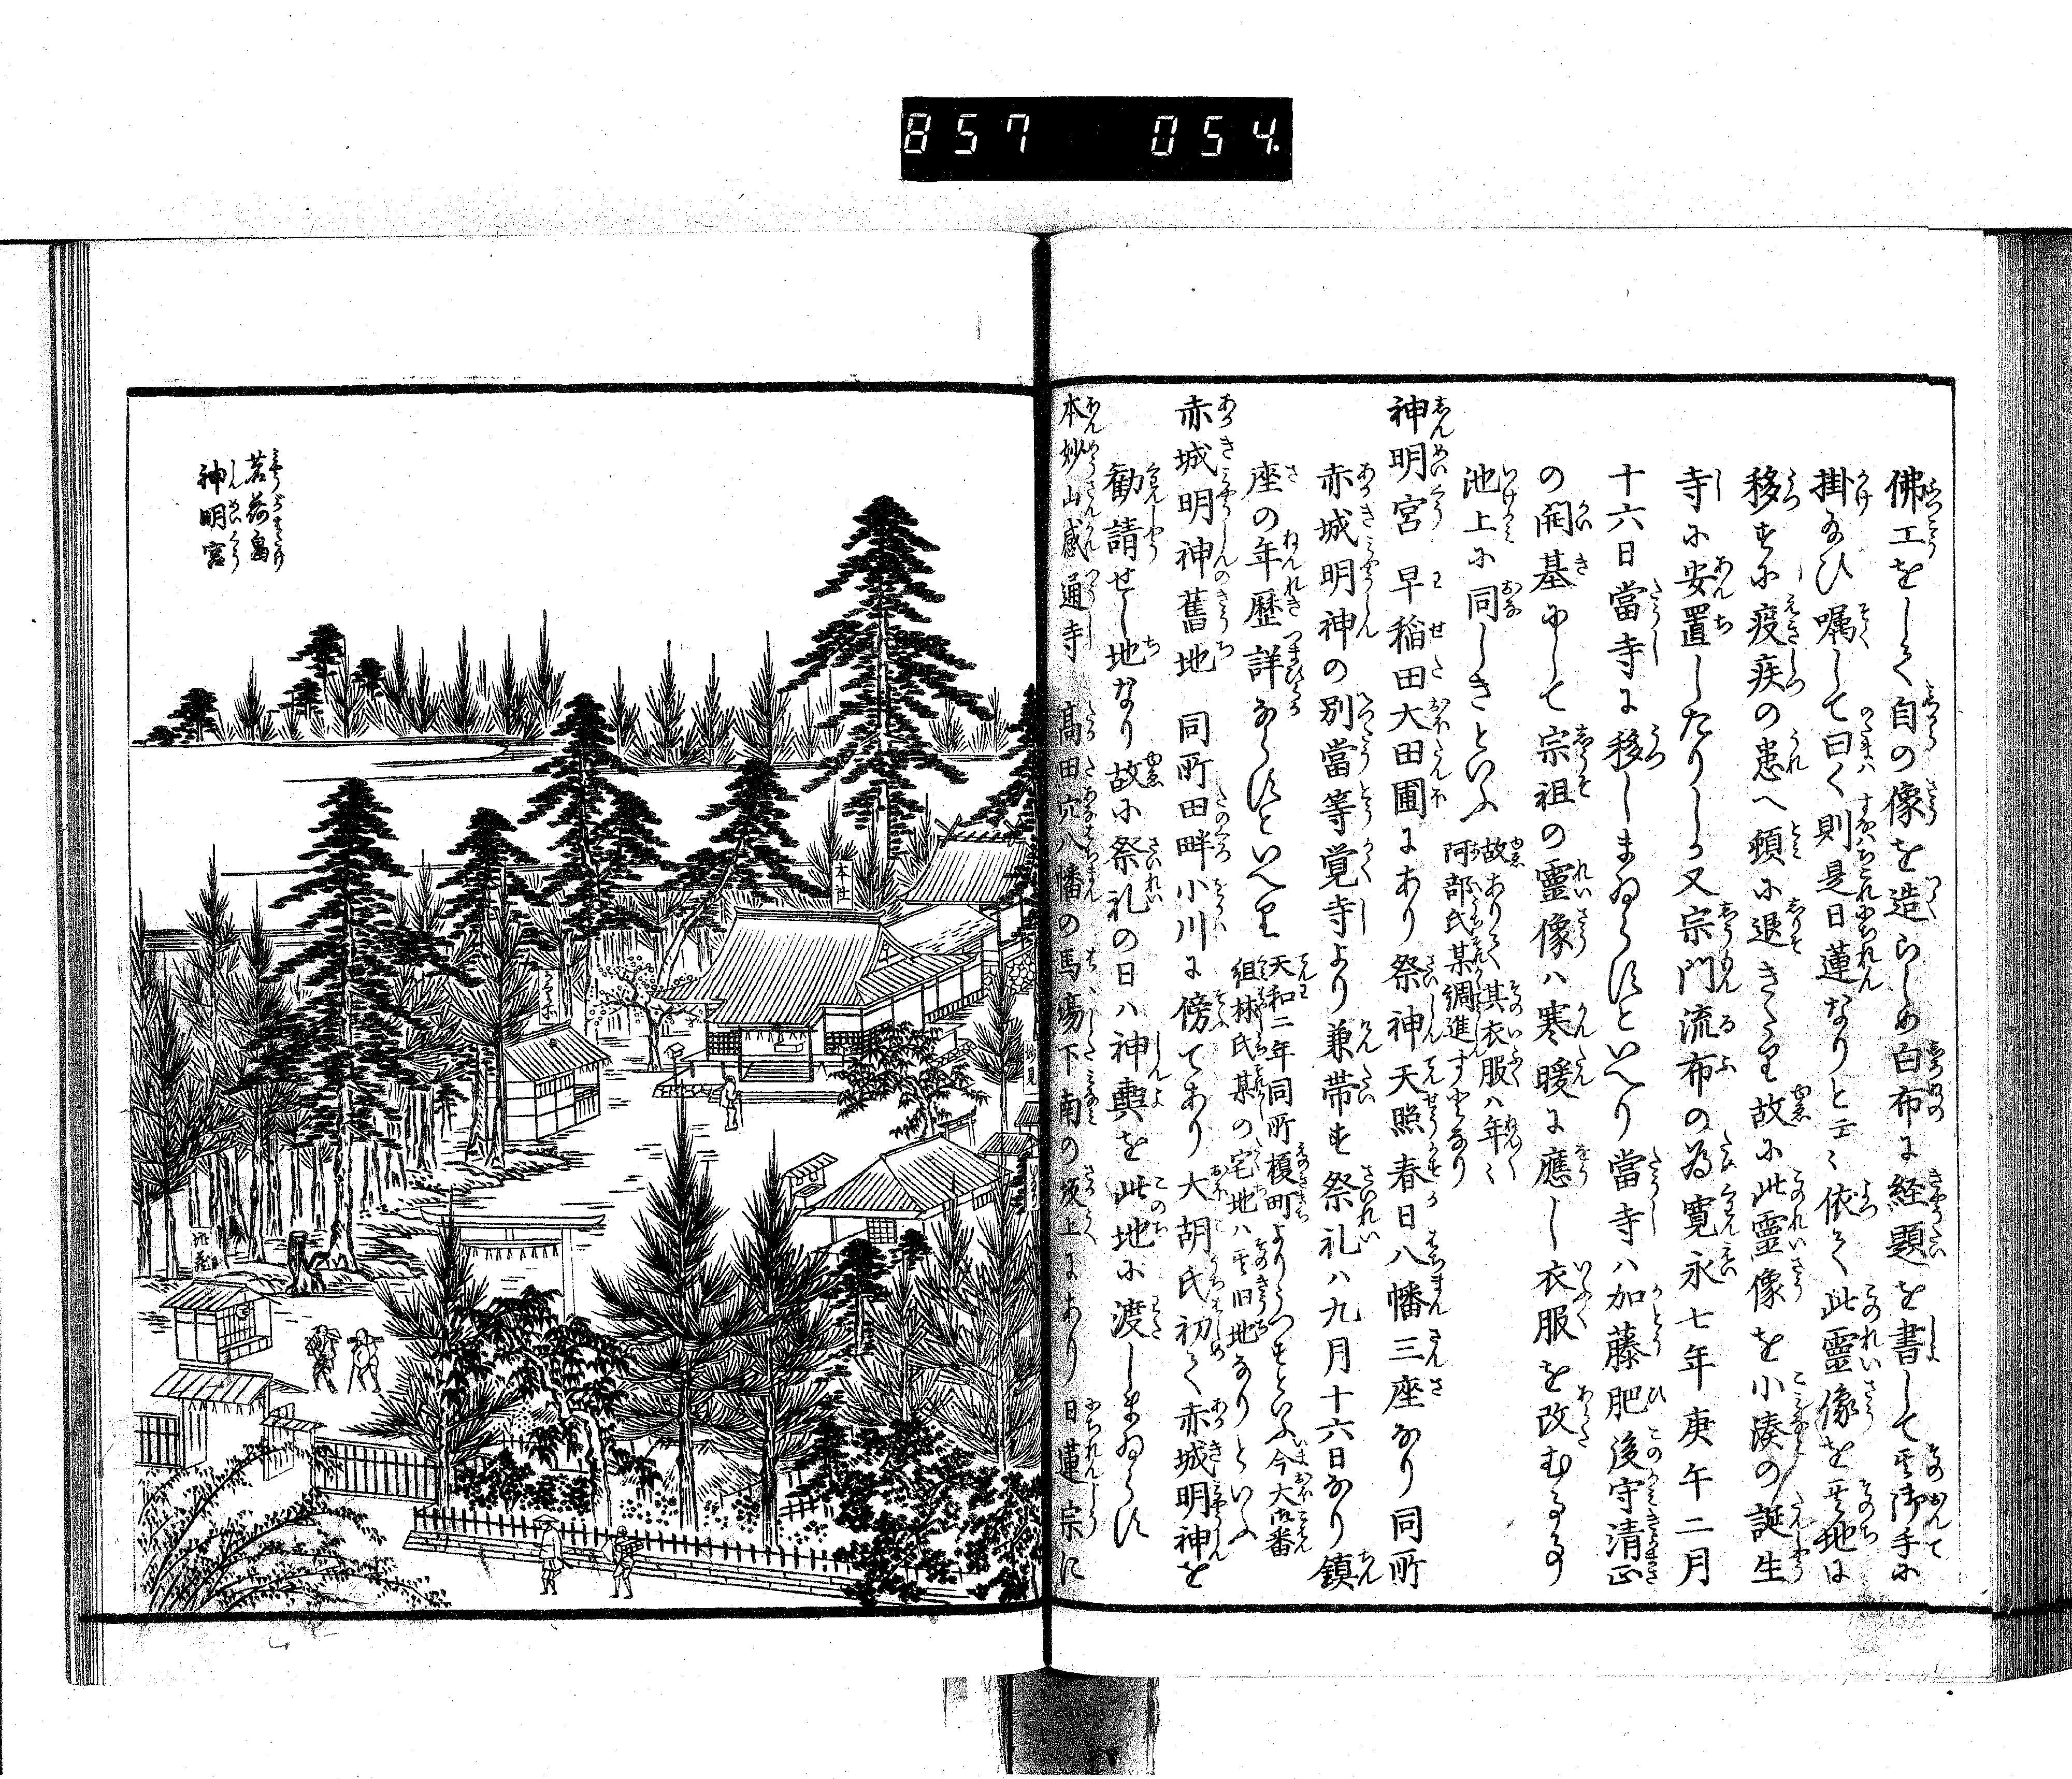 857 054.
佛工をして自の像を造らしめ白布に経題を書して其御手に
掛給ひ嘱して曰く則是日蓮なりと云々依て此霊像を其地に
移すに疫疾の患へ頓に退きたり故に此霊像を小湊の誕生
寺に安置したりしか又宗門流布の為寛永七年庚午二月
十六日當寺に移しまゐらすといへり當寺ハ加藤肥後守清正
の開基にして宗祖の霊像ハ寒暖に應し衣服を改むる事
池上に同しきといふ
故ありて其衣服ハ年々
阿部氏某調進すとなり
神明宮 早稲田大田圃にあり祭神天照春日八幡三座なり同所
赤城明神の別當等覚寺より兼帯す祭礼ハ九月十六日なり鎮
座の年歴詳ならすといへり
天和二年同所榎町よりうつすといふ今大御番
組林氏某の宅地ハ其旧地なりといふ
赤城明神舊地 同所田畔小川に傍てあり大胡氏初て赤城明神を
勧請せし地なり故に祭礼の日ハ神輿を此地に渡しまゐらす
本妙山感通寺 高田穴八幡の馬場下南の坂上にあり日蓮宗に
茗荷畠
神明宮
本社